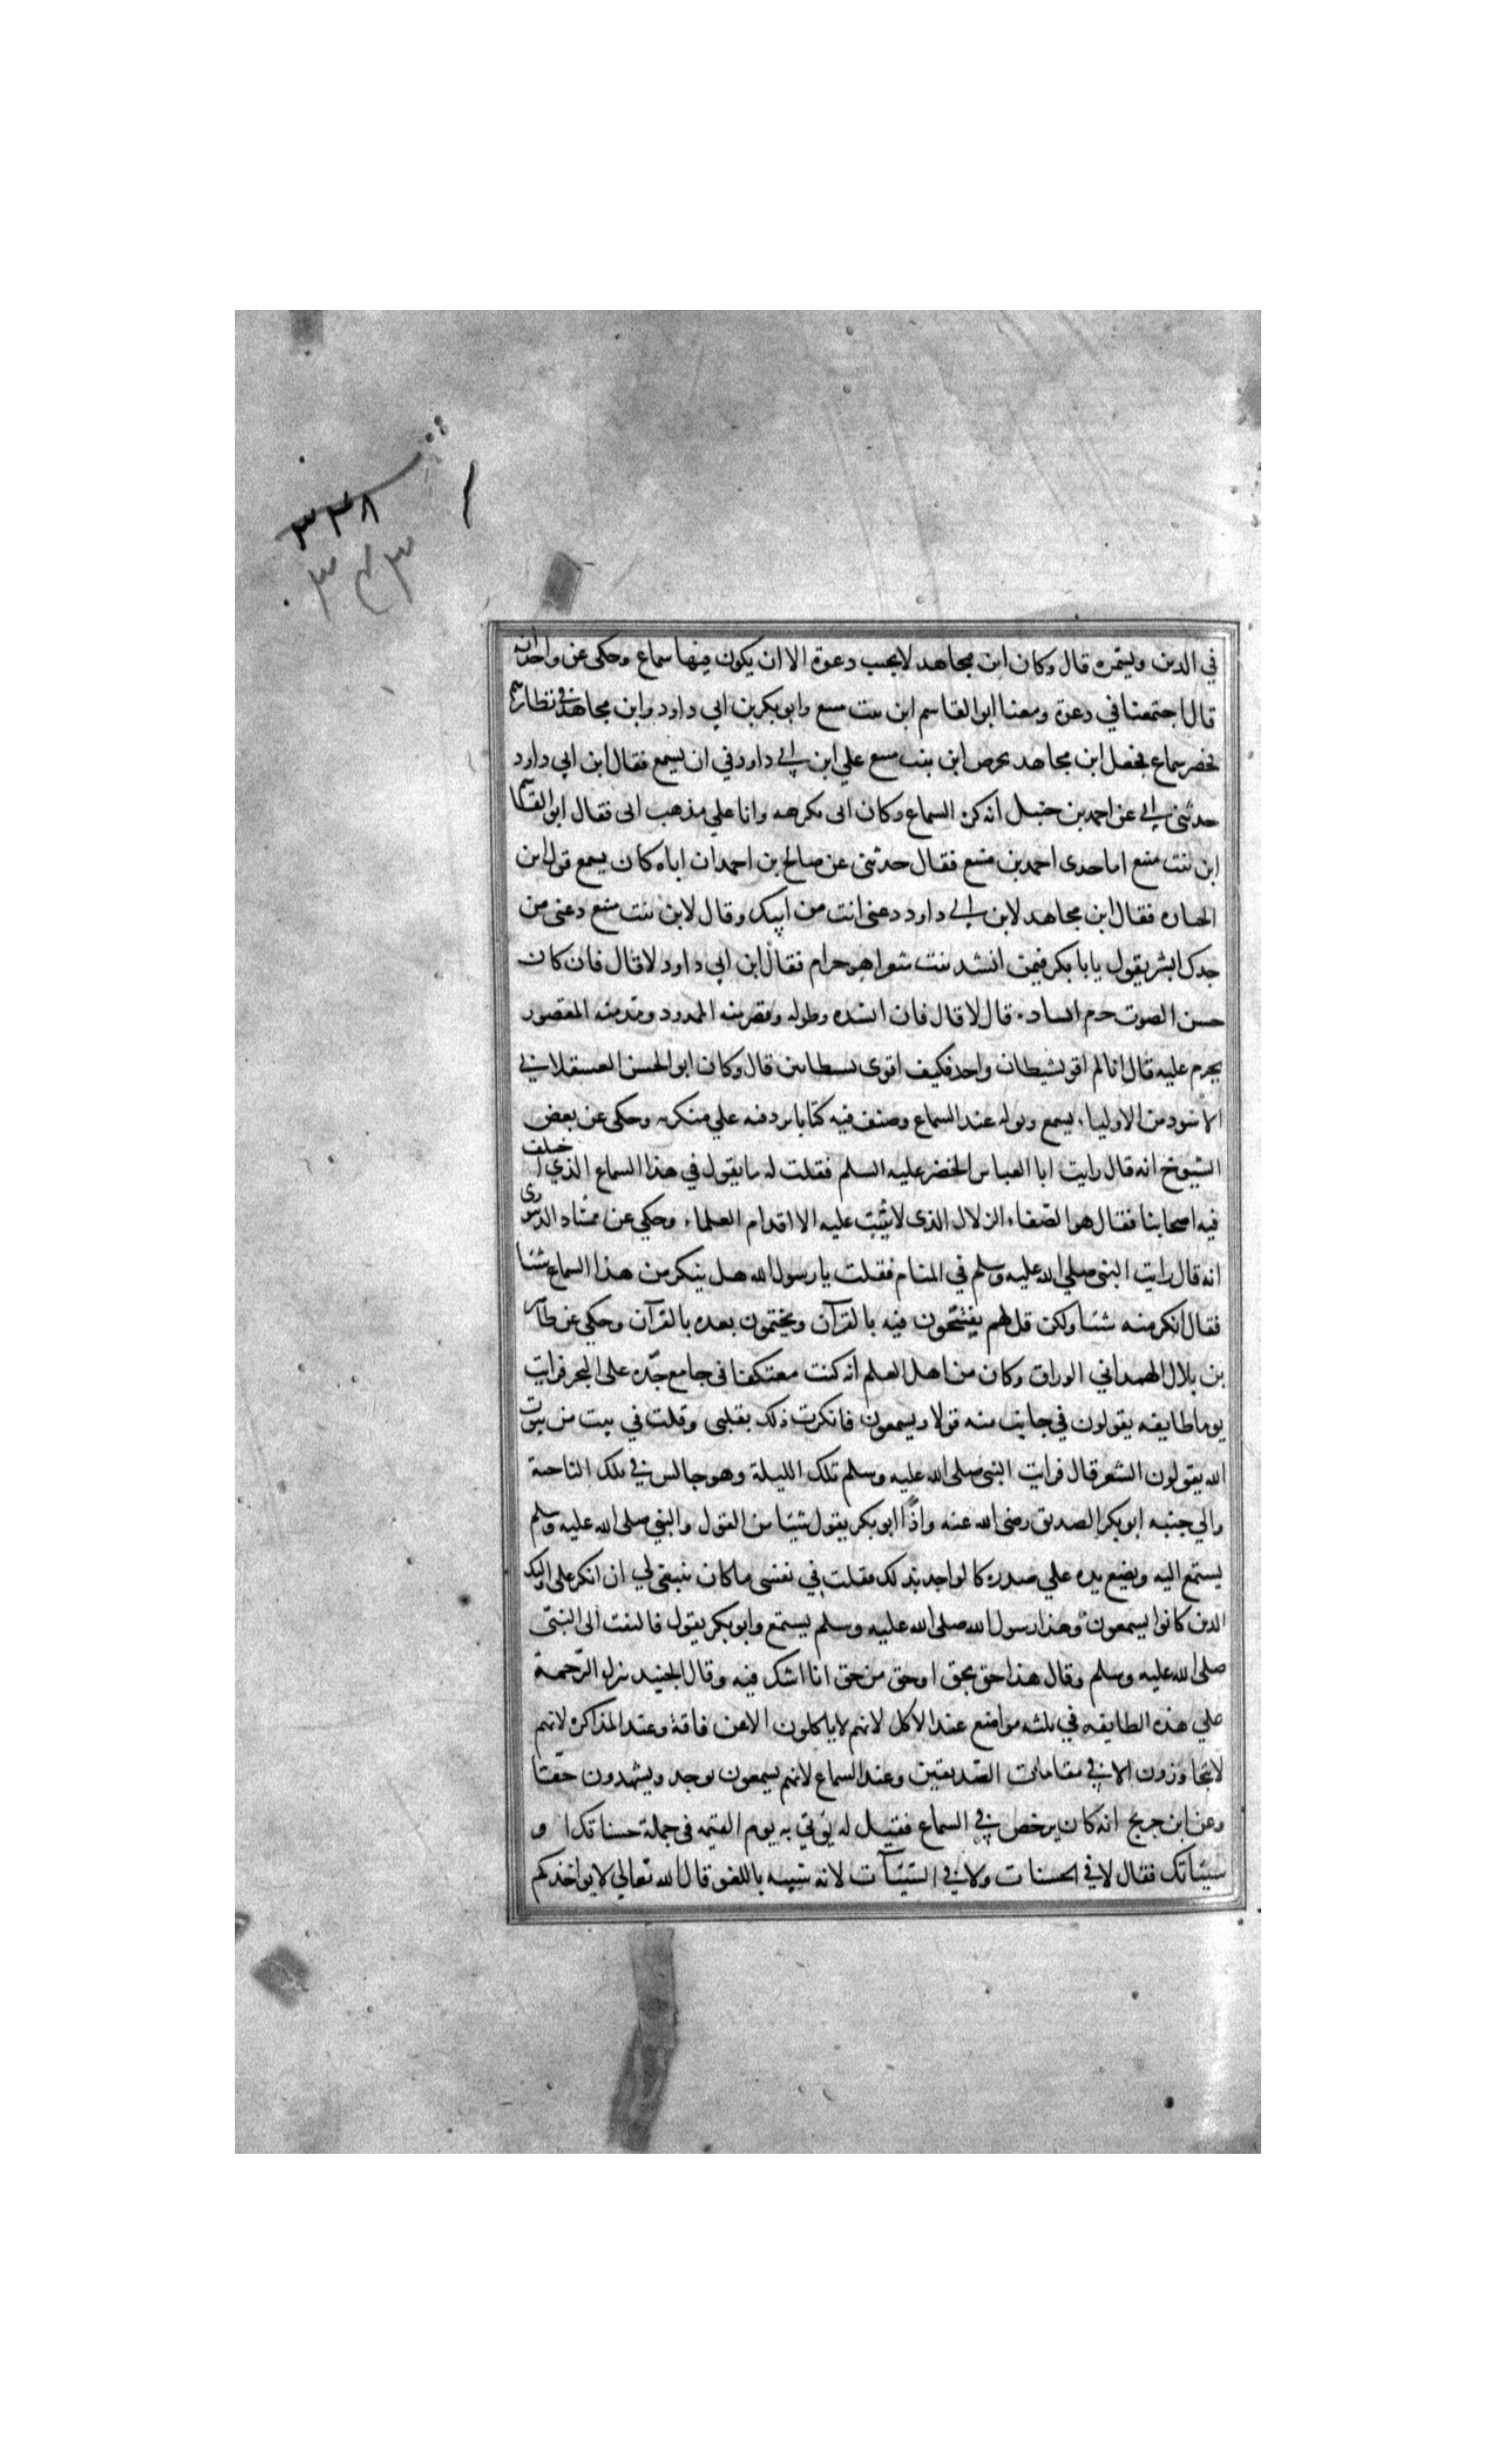 ٣٣٨
٣٤٣
في الدين ويتمره قال وكان ابن مجاهد لا يجيب دعوة الا ان يكون فيها سماع وحكى عن واحد انه
قال اجتمعنا في دعوة ومعنا ابو القاسم ابن بنت منيع وابو بكر بن ابي داود وابن مجاهد في نظارهم
فحضر سماع فجعل ابن مجاهد يحرض ابن بنت منيع علي ابن ابي داود في ان يسمع فقال ابن ابي داود
حدثني ابي عن احمد بن حنبل انه كره السماع وكان ابى يكرهه وانا علي مذهب ابى فقال ابو القاسم
ابن بنت منيع اما جدى احمد بن منيع فقال حدثنى عن صالح بن احمد ان اباه كان يسمع قول ابن
الخبازه فقال ابن مجاهد لابن ابي داود دعنى انت من ابيك وقال لابن بنت منيع دعنى من
جدك ايش يقول يابا بكر فيمن انشد بيت شعر اهو حرام فقال ابن ابي داود لا قال فان كان
حسن الصوت حرم انشاده قال لا قال فان انشده وطوله وقصر منه الممدود ومد منه المقصور
يحرم عليه قال انا لم اقو لشيطان واحد فكيف اقوى لشيطانين قال وكان ابو الحسن العسقلاني
الاسود من الاولياء يسمع ويوله عند السماع وصنف فيه كتابا يرد فيه علي منكريه وحكى عن بعض
الشيوخ انه قال رايت ابا العباس الخضر عليه السلم فقلت له ما يقول في هذا السماع الذي اختلف
فيه اصحابنا فقال هو الصفاء الزلال الذى لا يثبت عليه الا اقدام العلماء وحكي عن ممشاد الدينورى
انه قال رايت النبى صلي الله عليه وسلم في المنام فقلت يا رسول الله هل ينكر من هذا السماع شئا
فقال انكر منه شئا ولكن قل لهم يفتتحون فيه بالقرآن ويختمون بعده بالقرآن وحكي عن طاهر
بن بلال الهمداني الوراق وكان من اهل العلم انه كنت معتكفا فى جامع جدّه على البحر فرايت
يوما طايفه يقولون في جانب منه قولا ويسمعون فانكرت ذلك بقلبى وقلت في بيت من بيوت
الله يقولون الشعر قال فرايت النبى صلى الله عليه وسلم تلك الليلة وهو جالس في تلك الناحية
والي جنبه ابو بكر الصديق رضى الله عنه واذا ابو بكر يقول شيئا من القول والنبي صلى الله عليه وسلم
يستمع اليه ويضع يده علي صدره كالواجد بذلك فقلت في نفسى ما كان ينبغى لي ان انكر على اوليك
الدين كانوا يسمعون وهذا رسول الله صلى الله عليه وسلم يستمع وابو بكر يقول فالتفت الى النبىّ
صلى الله عليه وسلم وقال هذا حق بحق او حق من حق انا اشك فيه وقال الجنيد تنزل الرّحمة
علي هذه الطايفه في ثلثه مواضع عند الاكل لانهم لا ياكلون الا عن فاقة وعند المذاكرة لانهم
لا يتجاوزون الا في مقامات الصّديقين وعند السماع لانهم يسمعون بوجد ويشهدون حقّا
وعن ابن جريج انه كان يرخص في السماع فقيل له يؤتي به يوم القيمه فى جملة حسناتك او
سيّئاتك فقال لا في الحسنات ولا في السّيّئآت لانه شبيه باللغو قال الله تعالي لا يواخذكم